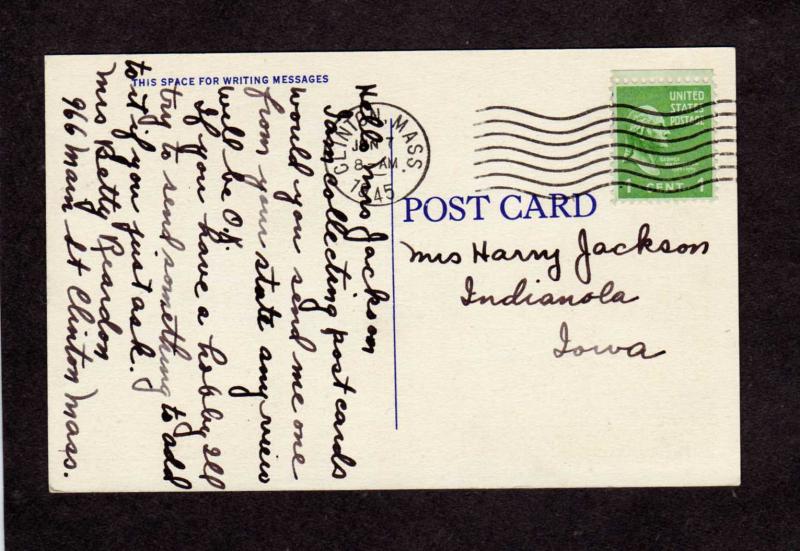 THIS SPACE FOR WRITING MESSAGES
Hello Mrs Jackson
I am collecting post cards
would you send me one
from your state any view
will be O.J.
If you have a hobby Ill
try to send something to add
to it if you just ask.
Mrs Betty Reardon
966 Main St Clinton Mass.
CLINTON, MASS.
8 - AM
1945
UNITED
STATES
POSTAGE
1 CENT 1
POST CARD
Mrs Harry Jackson
Indianola
Iowa